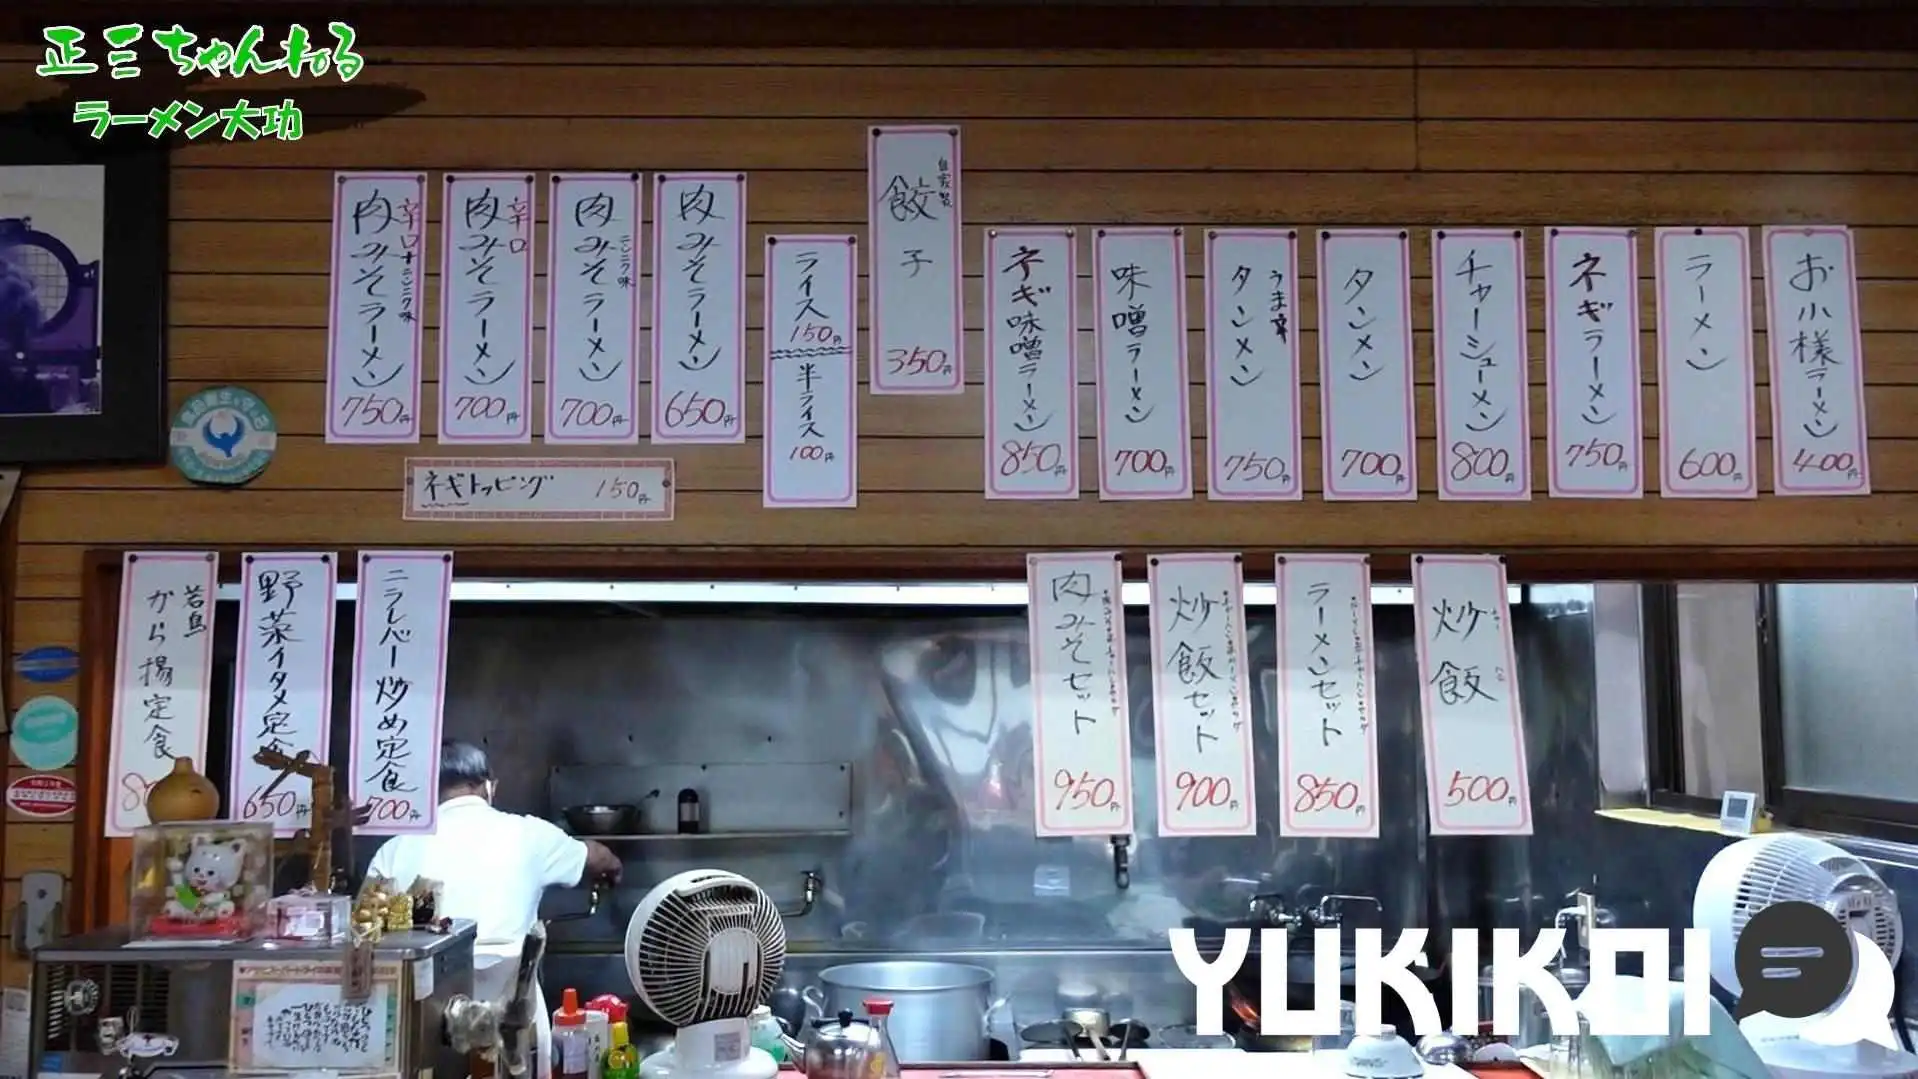 正三ちゃんねる
ラーメン大功
お小様ラーメン 400円
ラーメン 600円
ネギラーメン 750円
チャーシューメン 800円
タンメン 700円
うま辛タンメン 750円
味噌ラーメン 700円
ネギ味噌ラーメン 850円
自家製餃子 350円
ライス 150円
半ライス 100円
肉みそラーメン 650円
肉みそラーメン ニンニク味 700円
肉みそラーメン 辛口 700円
肉みそラーメン 辛口+ニンニク味 750円
ネギトッピング 150円
炒飯 500円
ラーメンセット 850円
炒飯セット 900円
肉みそセット 950円
ニラレバー炒め定食 700円
野菜イタメ定食 650円
若鳥から揚定食
YUKIKOI